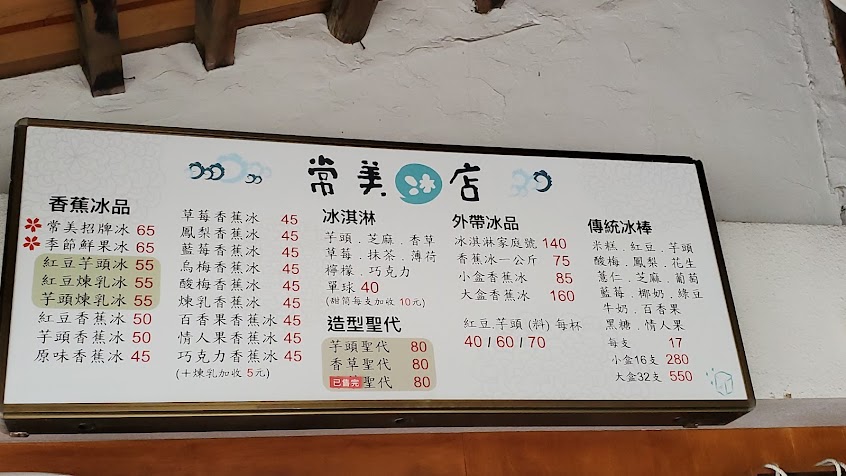 常美冰店
香蕉冰品
常美招牌冰 65
季節鮮果冰 65
紅豆芋頭冰 55
紅豆煉乳冰 55
芋頭煉乳冰 55
紅豆香蕉冰 50
芋頭香蕉冰 50
原味香蕉冰 45
草莓香蕉冰 45
鳳梨香蕉冰 45
藍莓香蕉冰 45
烏梅香蕉冰 45
酸梅香蕉冰 45
煉乳香蕉冰 45
百香果香蕉冰 45
情人果香蕉冰 45
巧克力香蕉冰 45
(＋煉乳加收 5元)
冰淇淋
芋頭．芝麻．香草
草莓．抹茶．薄荷
檸檬．巧克力
單球 40
(甜筒每支加收 10元)
造型聖代
芋頭聖代 80
香草聖代 80
已售完 聖代 80
外帶冰品
冰淇淋家庭號 140
香蕉冰一公斤 75
小盒香蕉冰 85
大盒香蕉冰 160
紅豆.芋頭 (料) 每杯
40 / 60 / 70
傳統冰棒
米糕．紅豆．芋頭
酸梅．鳳梨．花生
薏仁．芝麻．葡萄
藍莓．椰奶．綠豆
牛奶．百香果
黑糖．情人果
每支 17
小盒16支 280
大盒32支 550